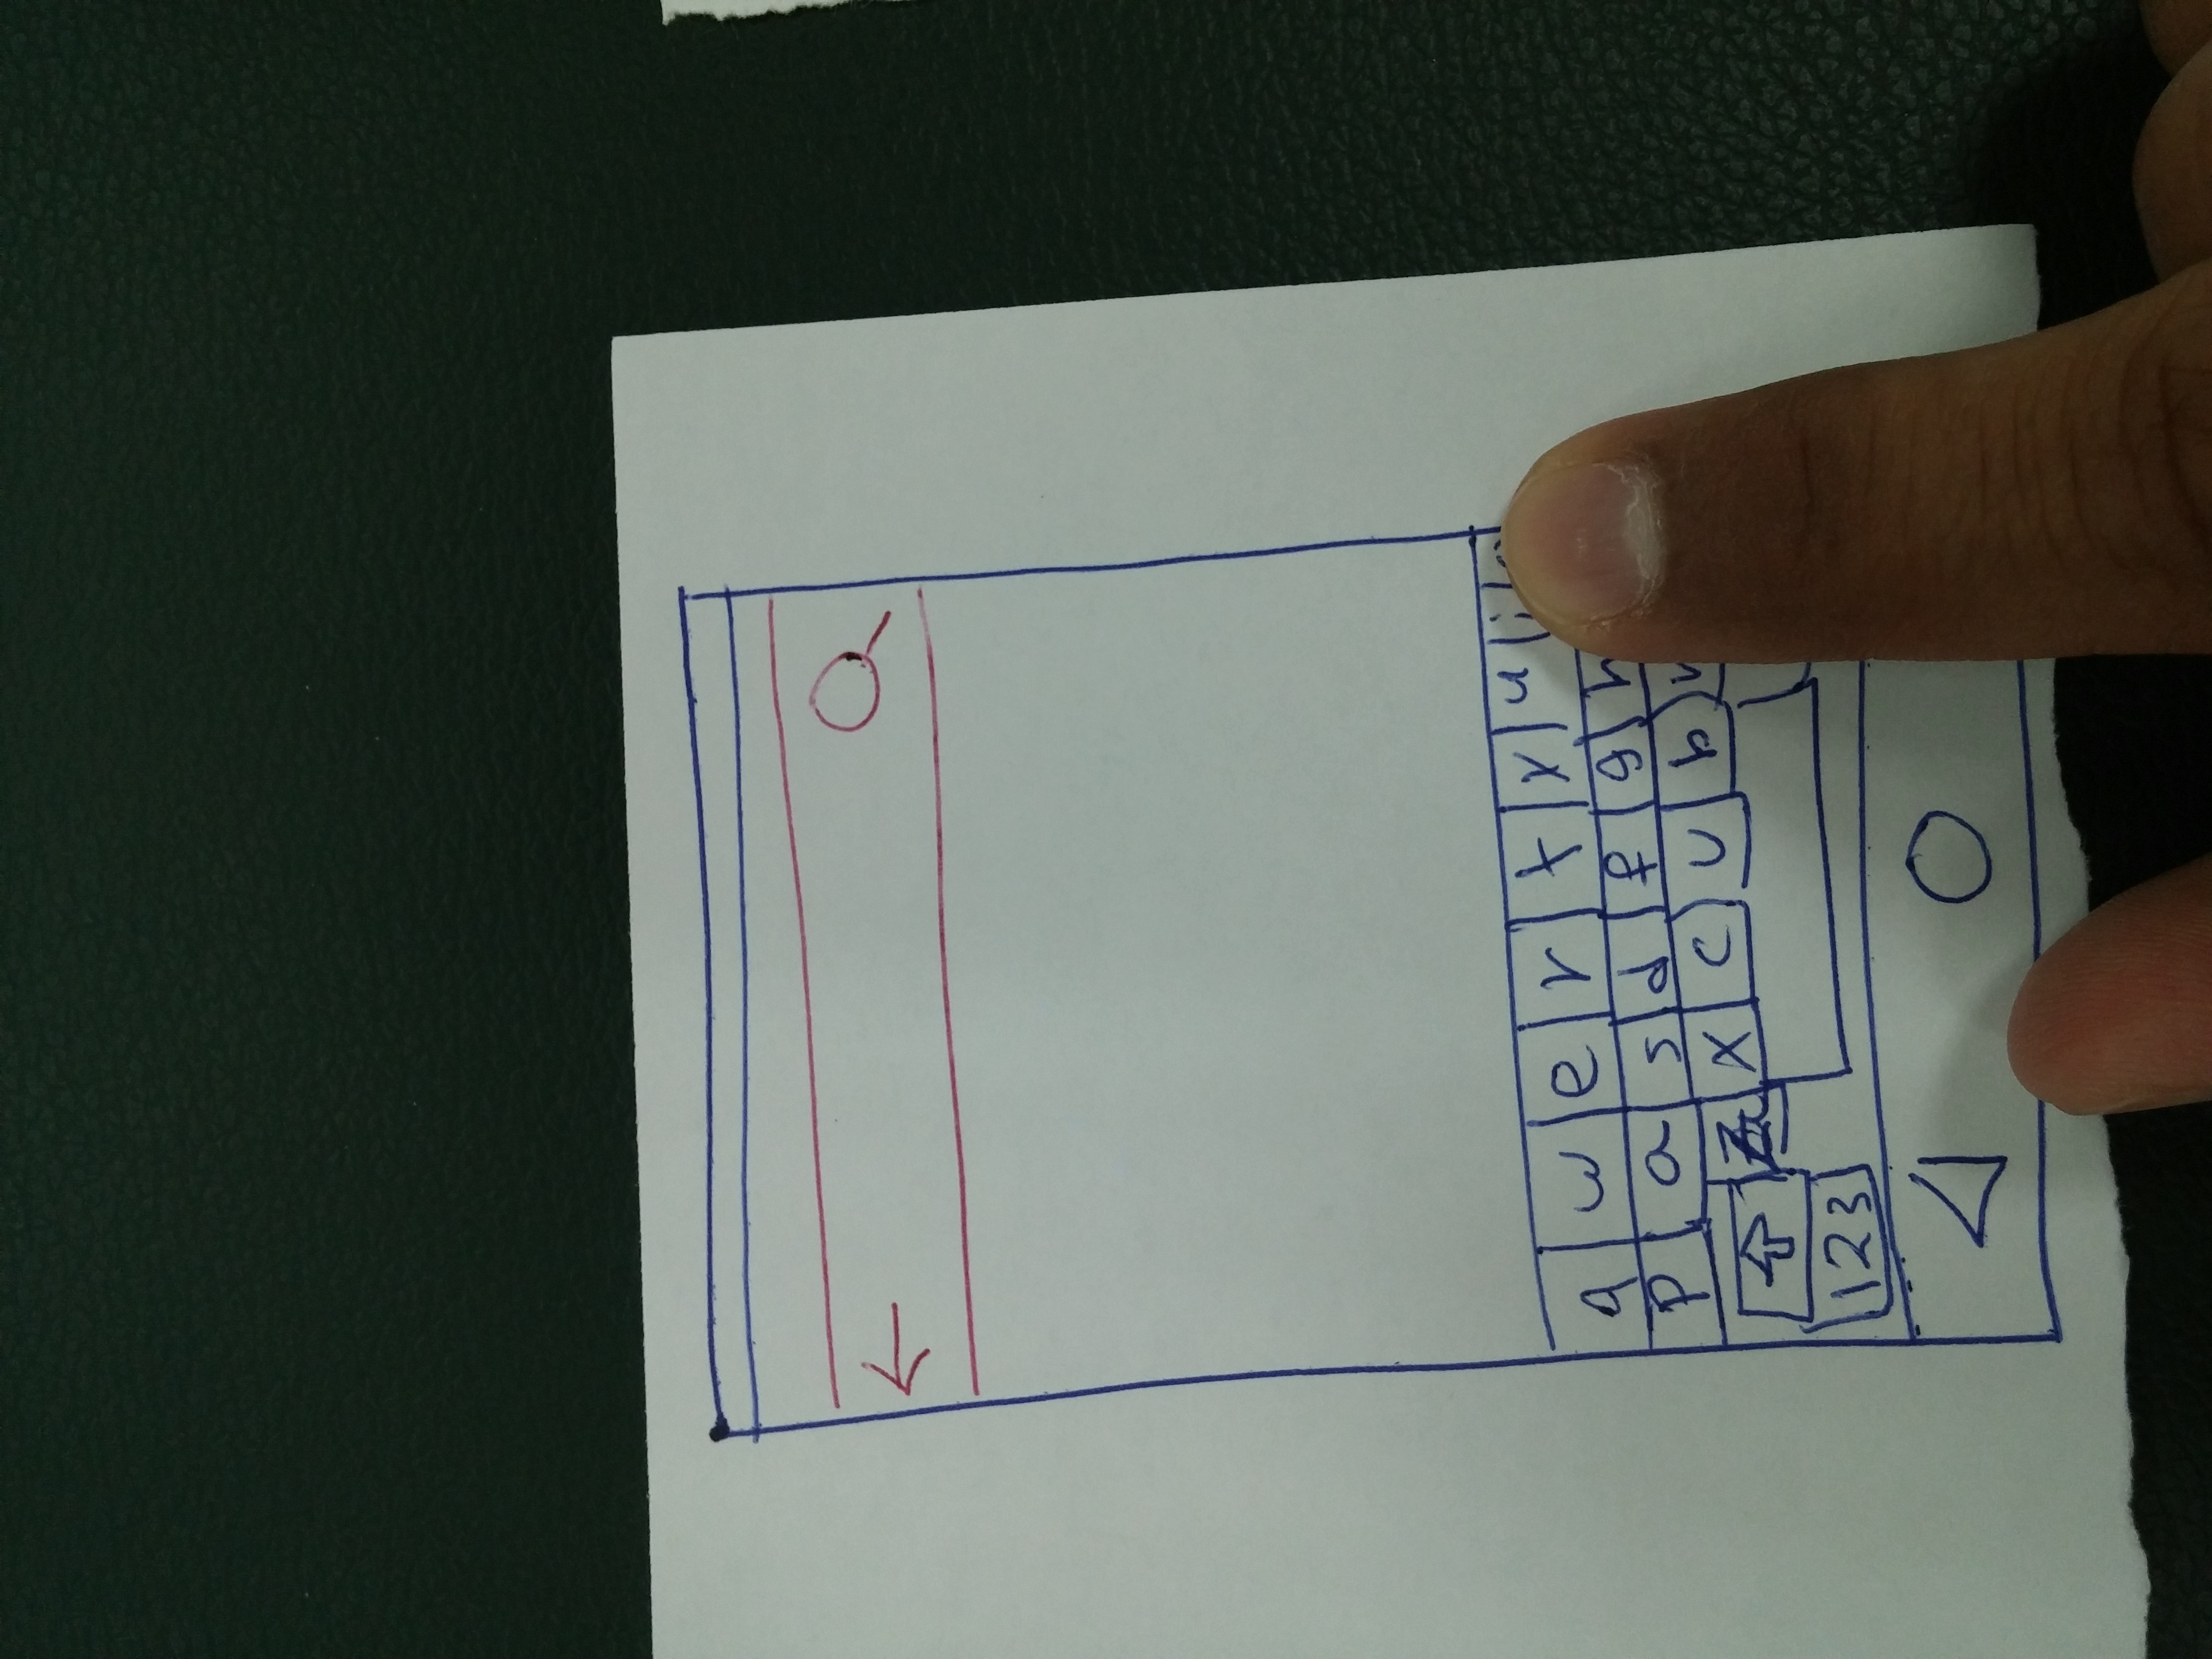 q w e r t y u i
p a s d f g h
z x c v b
123